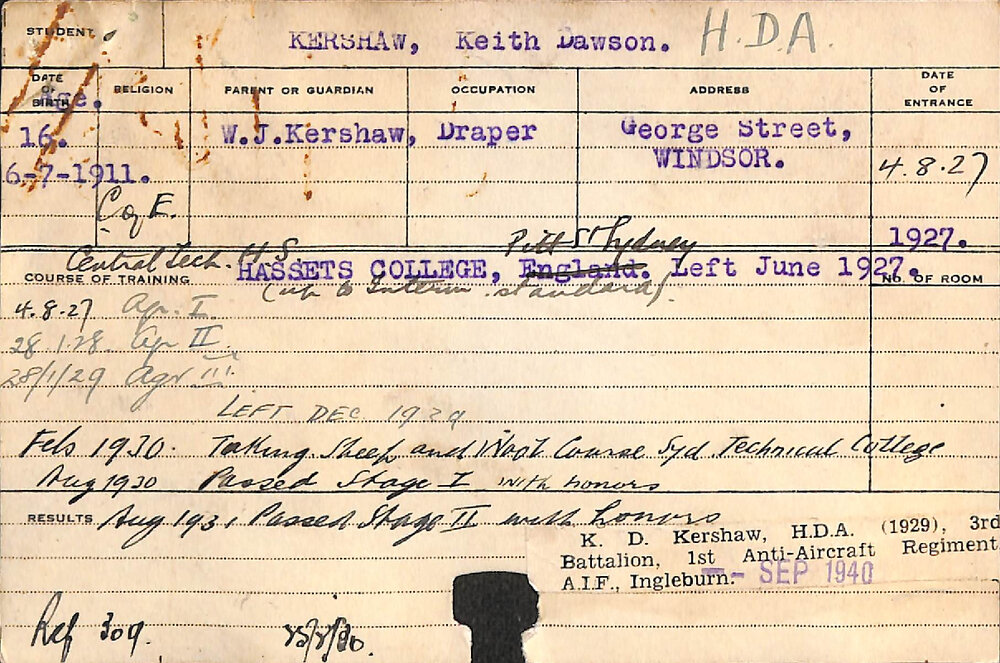 STUDENT. KERSHAW, Keith Dawson. H.D.A.
DATE OF BIRTH RELIGION PARENT OR GUARDIAN OCCUPATION ADDRESS DATE OF ENTRANCE
Age.
16. W.J.Kershaw, Draper George Street,
WINDSOR.
6-7-1911. 4.8.27
C of E.
Pitt St Sydney 1927.
Central Tech. H.S.
COURSE OF TRAINING HASSETS COLLEGE, England. Left June 1927. NO. OF ROOM
(up to Interm standard).
4.8.27 Agr. I.
28.1.28. Agr II.
28/1/29 Agr III.
LEFT DEC. 1929
Feb 1930. Taking Sheep and Wool Course Syd Technical College
Aug 1930 Passed Stage I with honors
RESULTS Aug 1931 Passed Stage II with honors
K. D. Kershaw, H.D.A. (1929), 3rd
Battalion, 1st Anti-Aircraft Regiment,
A.I.F., Ingleburn. - SEP 1940
Ref 309.